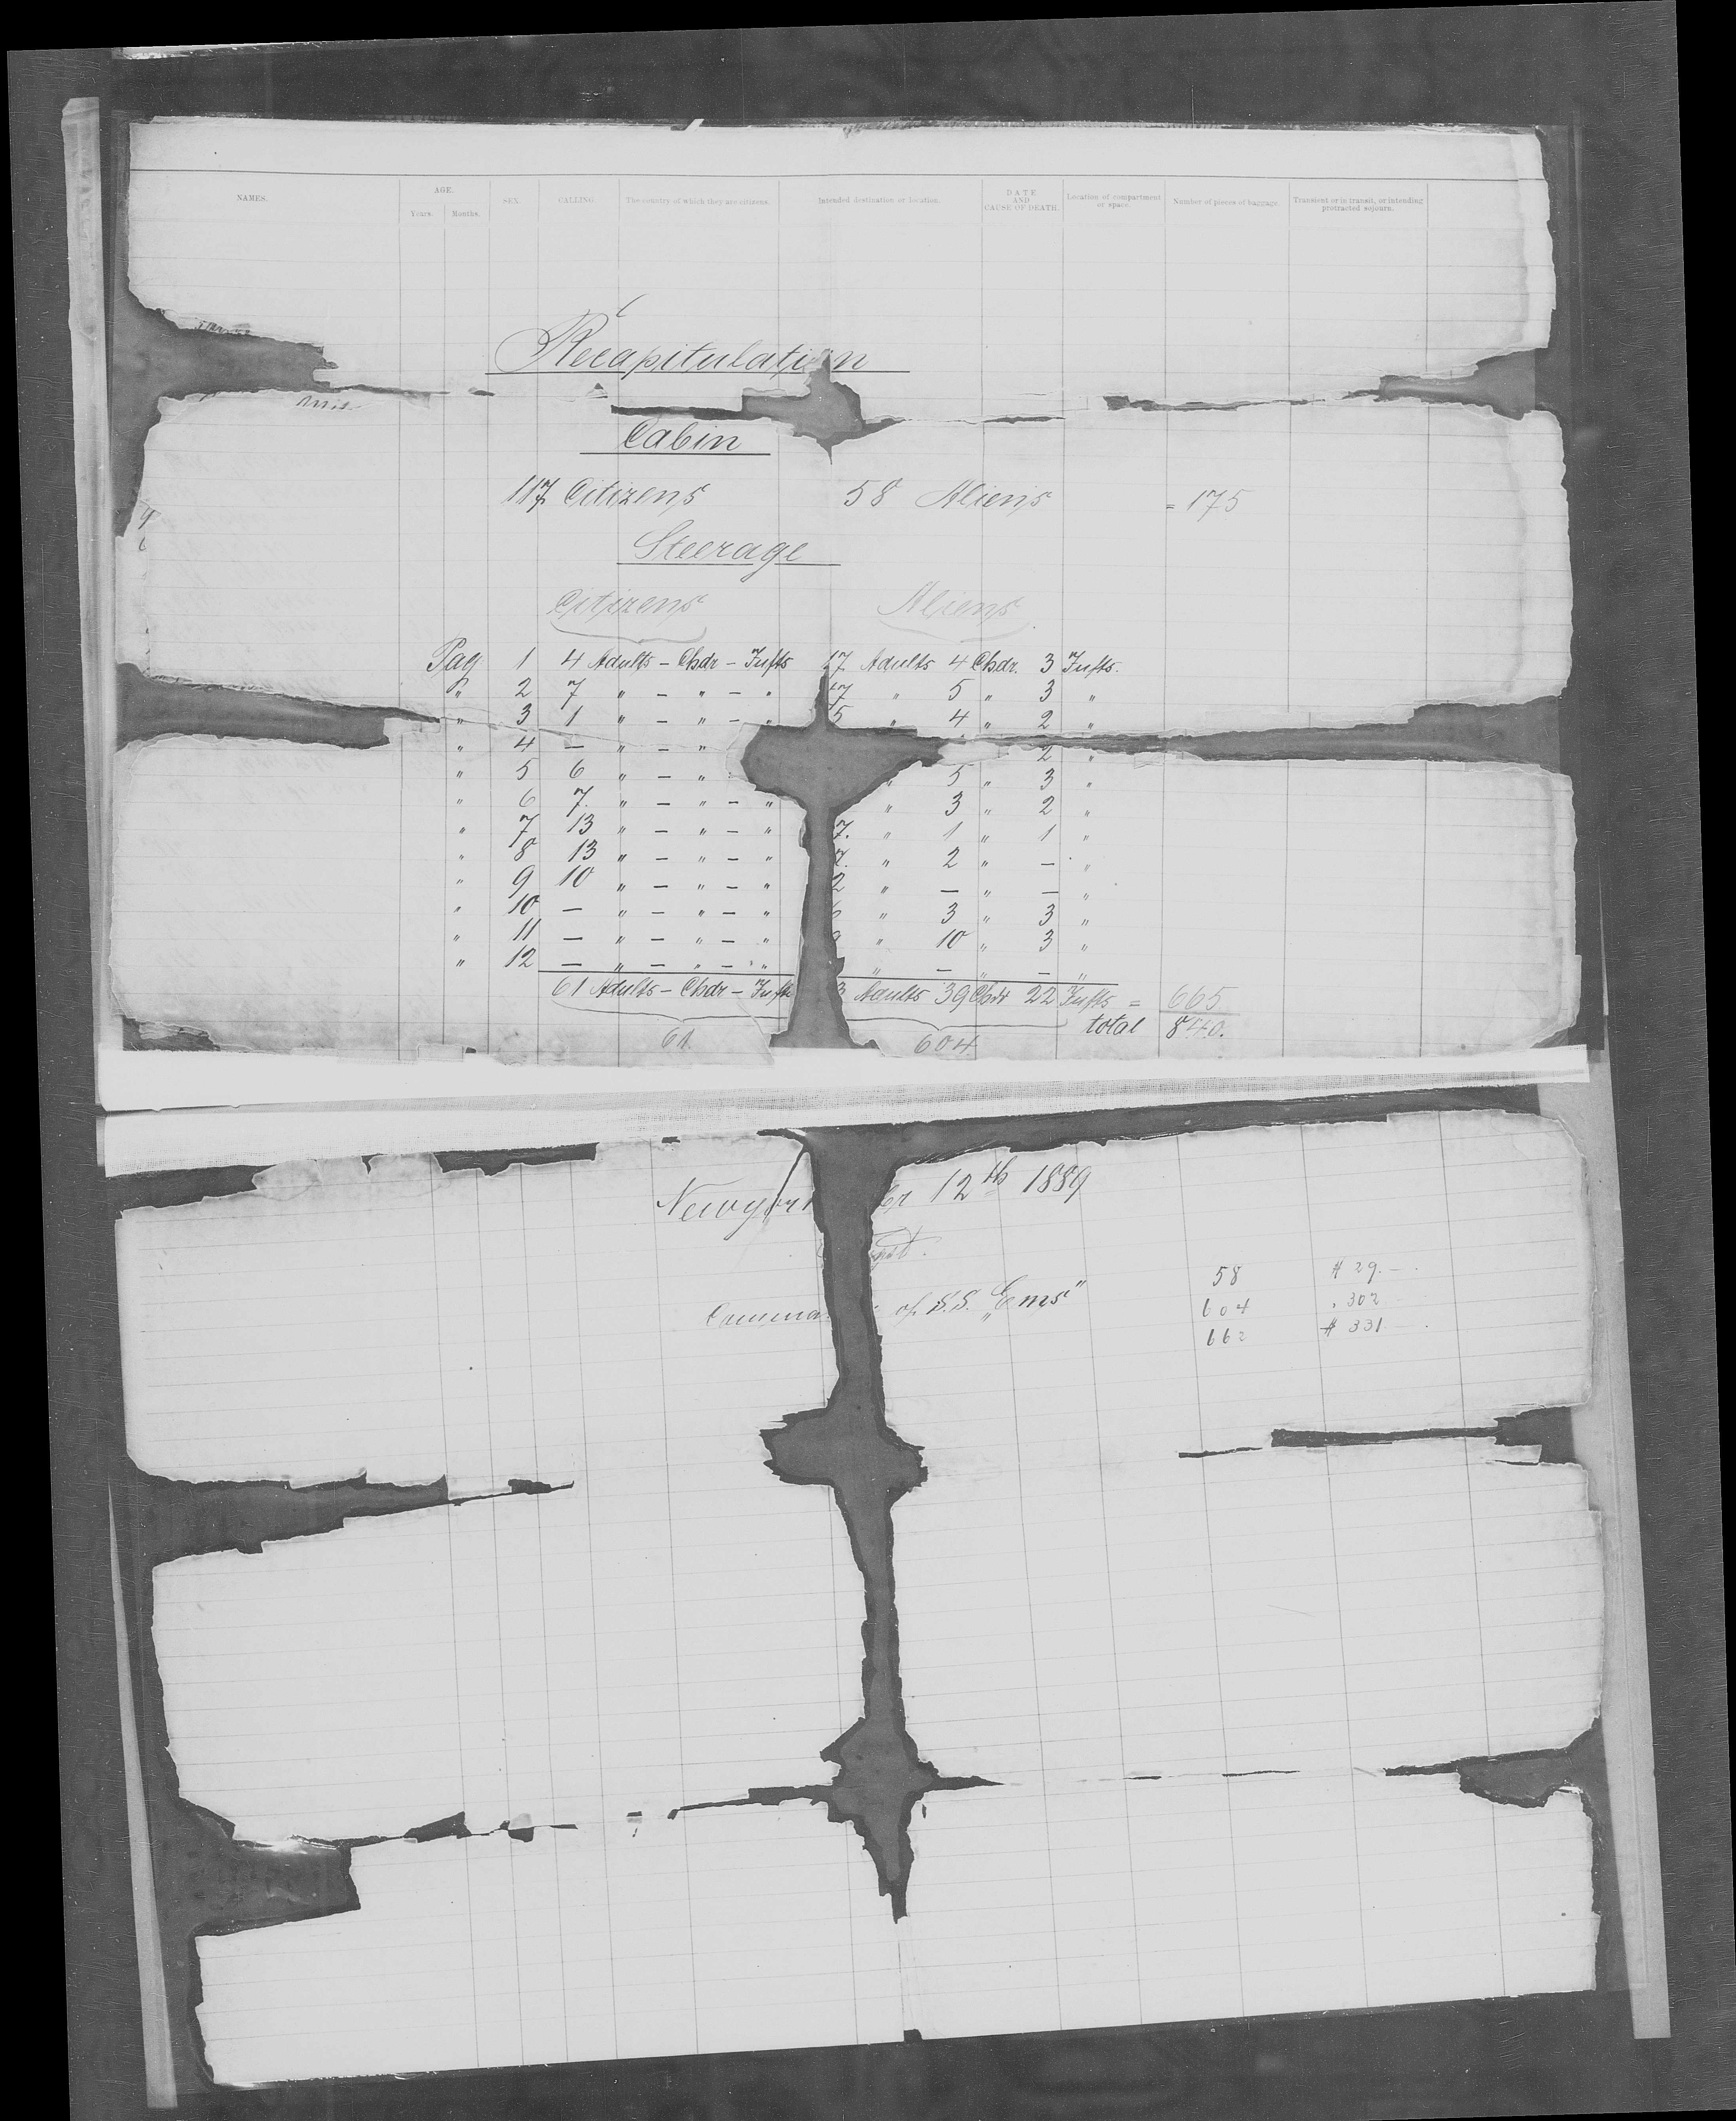 NAMES. AGE. SEX. CALLING. The country of which they are citizens. Intended destination or location. DATE AND CAUSE OF DEATH. Location of compartment or space. Number of pieces of baggage. Transient or in transit, or intending protracted sojourn.
Years. Months.
Recapitulation
Cabin
117 Citizens 58 Aliens = 175
Steerage
Citizens Aliens
Pag 1 4 Adults – Chdr – Infts 17 Adults 4 Chdr. 3 Infts.
" 2 7 " – " – " 17 " 5 " 3 "
" 3 1 " – " – " 5 " 4 " 2 "
" 4 – " – " 2 "
" 5 6 " – " " 5 " 3 "
" 6 7. " – " – " " 3 " 2 "
" 7 13 " – " – " 7. " 1 " 1 "
" 8 13 " – " – " 7. " 2 " – "
" 9 10 " – " – " 2 " – " – "
" 10 – " – " – " " 3 " 3 "
" 11 – " – " – " " 10 " 3 "
" 12 – " – " – " " – " – "
61 Adults – Chdr – Infts 3 Adults 39 Chdr 22 Infts = 665
61 604 total 840.
12th 1889
58 $ 29.–
of S.S. „Ems"
604 " 302
662 $ 331